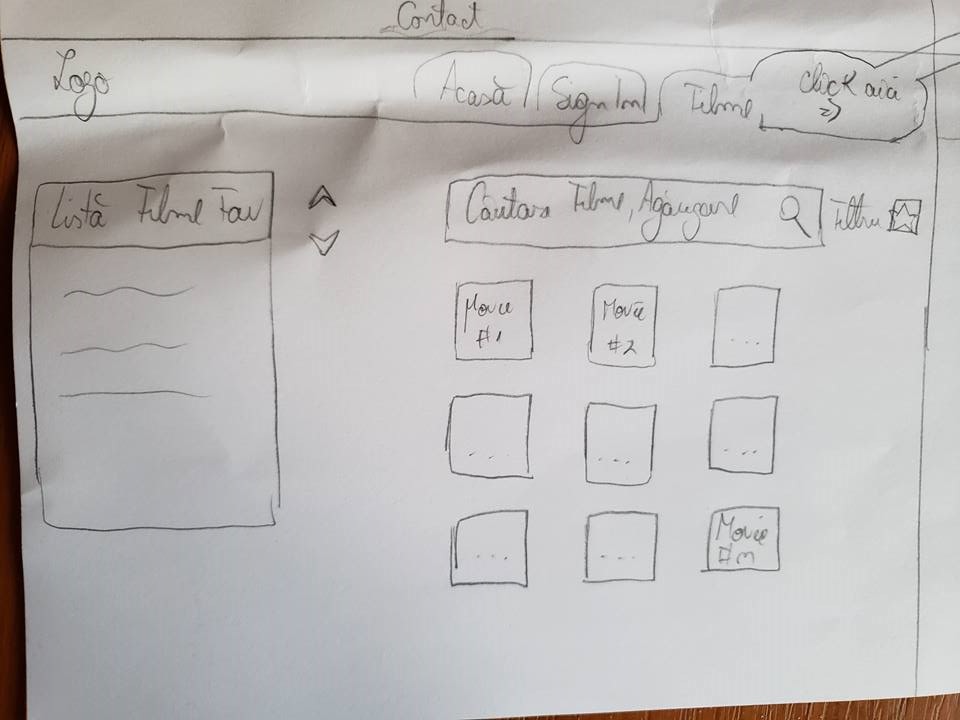 Contact
Logo
Acasă
Sign In
Filme
click aici
=>
Listă Filme Fav
Căutare Filme,
Filtru
Movie
#1
Movie
#2
...
...
...
...
...
...
Movie
#n